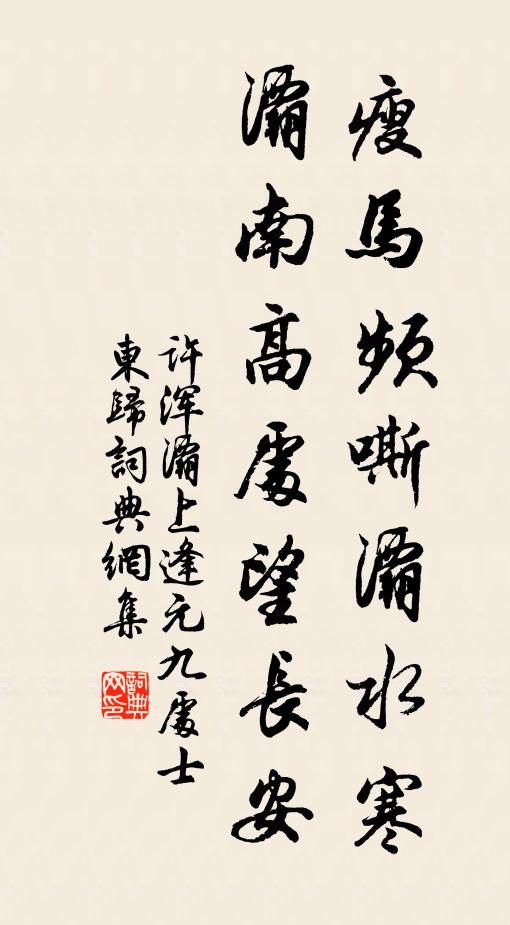 瘦馬頻嘶灞水寒
灞南高處望長安
許渾灞上逢元九處士
東歸詞典網集
詞典网印